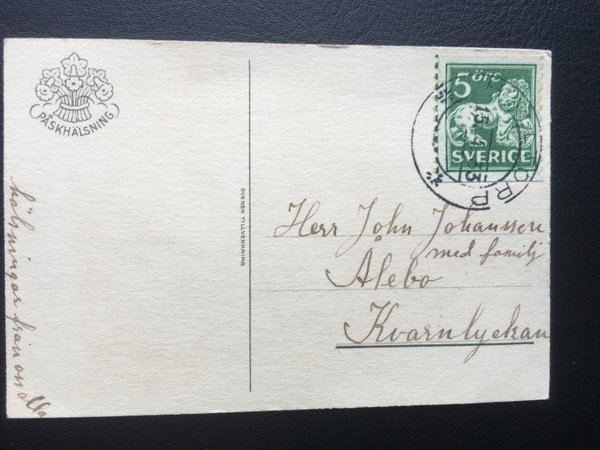 PÅSKHÄLSNING
hälsningar från oss alla
SVENSK TILLVERKNING
5 ÖRE
SVERIGE
Herr John Johansson
med familj
Ålebo
Kvarnlyckan